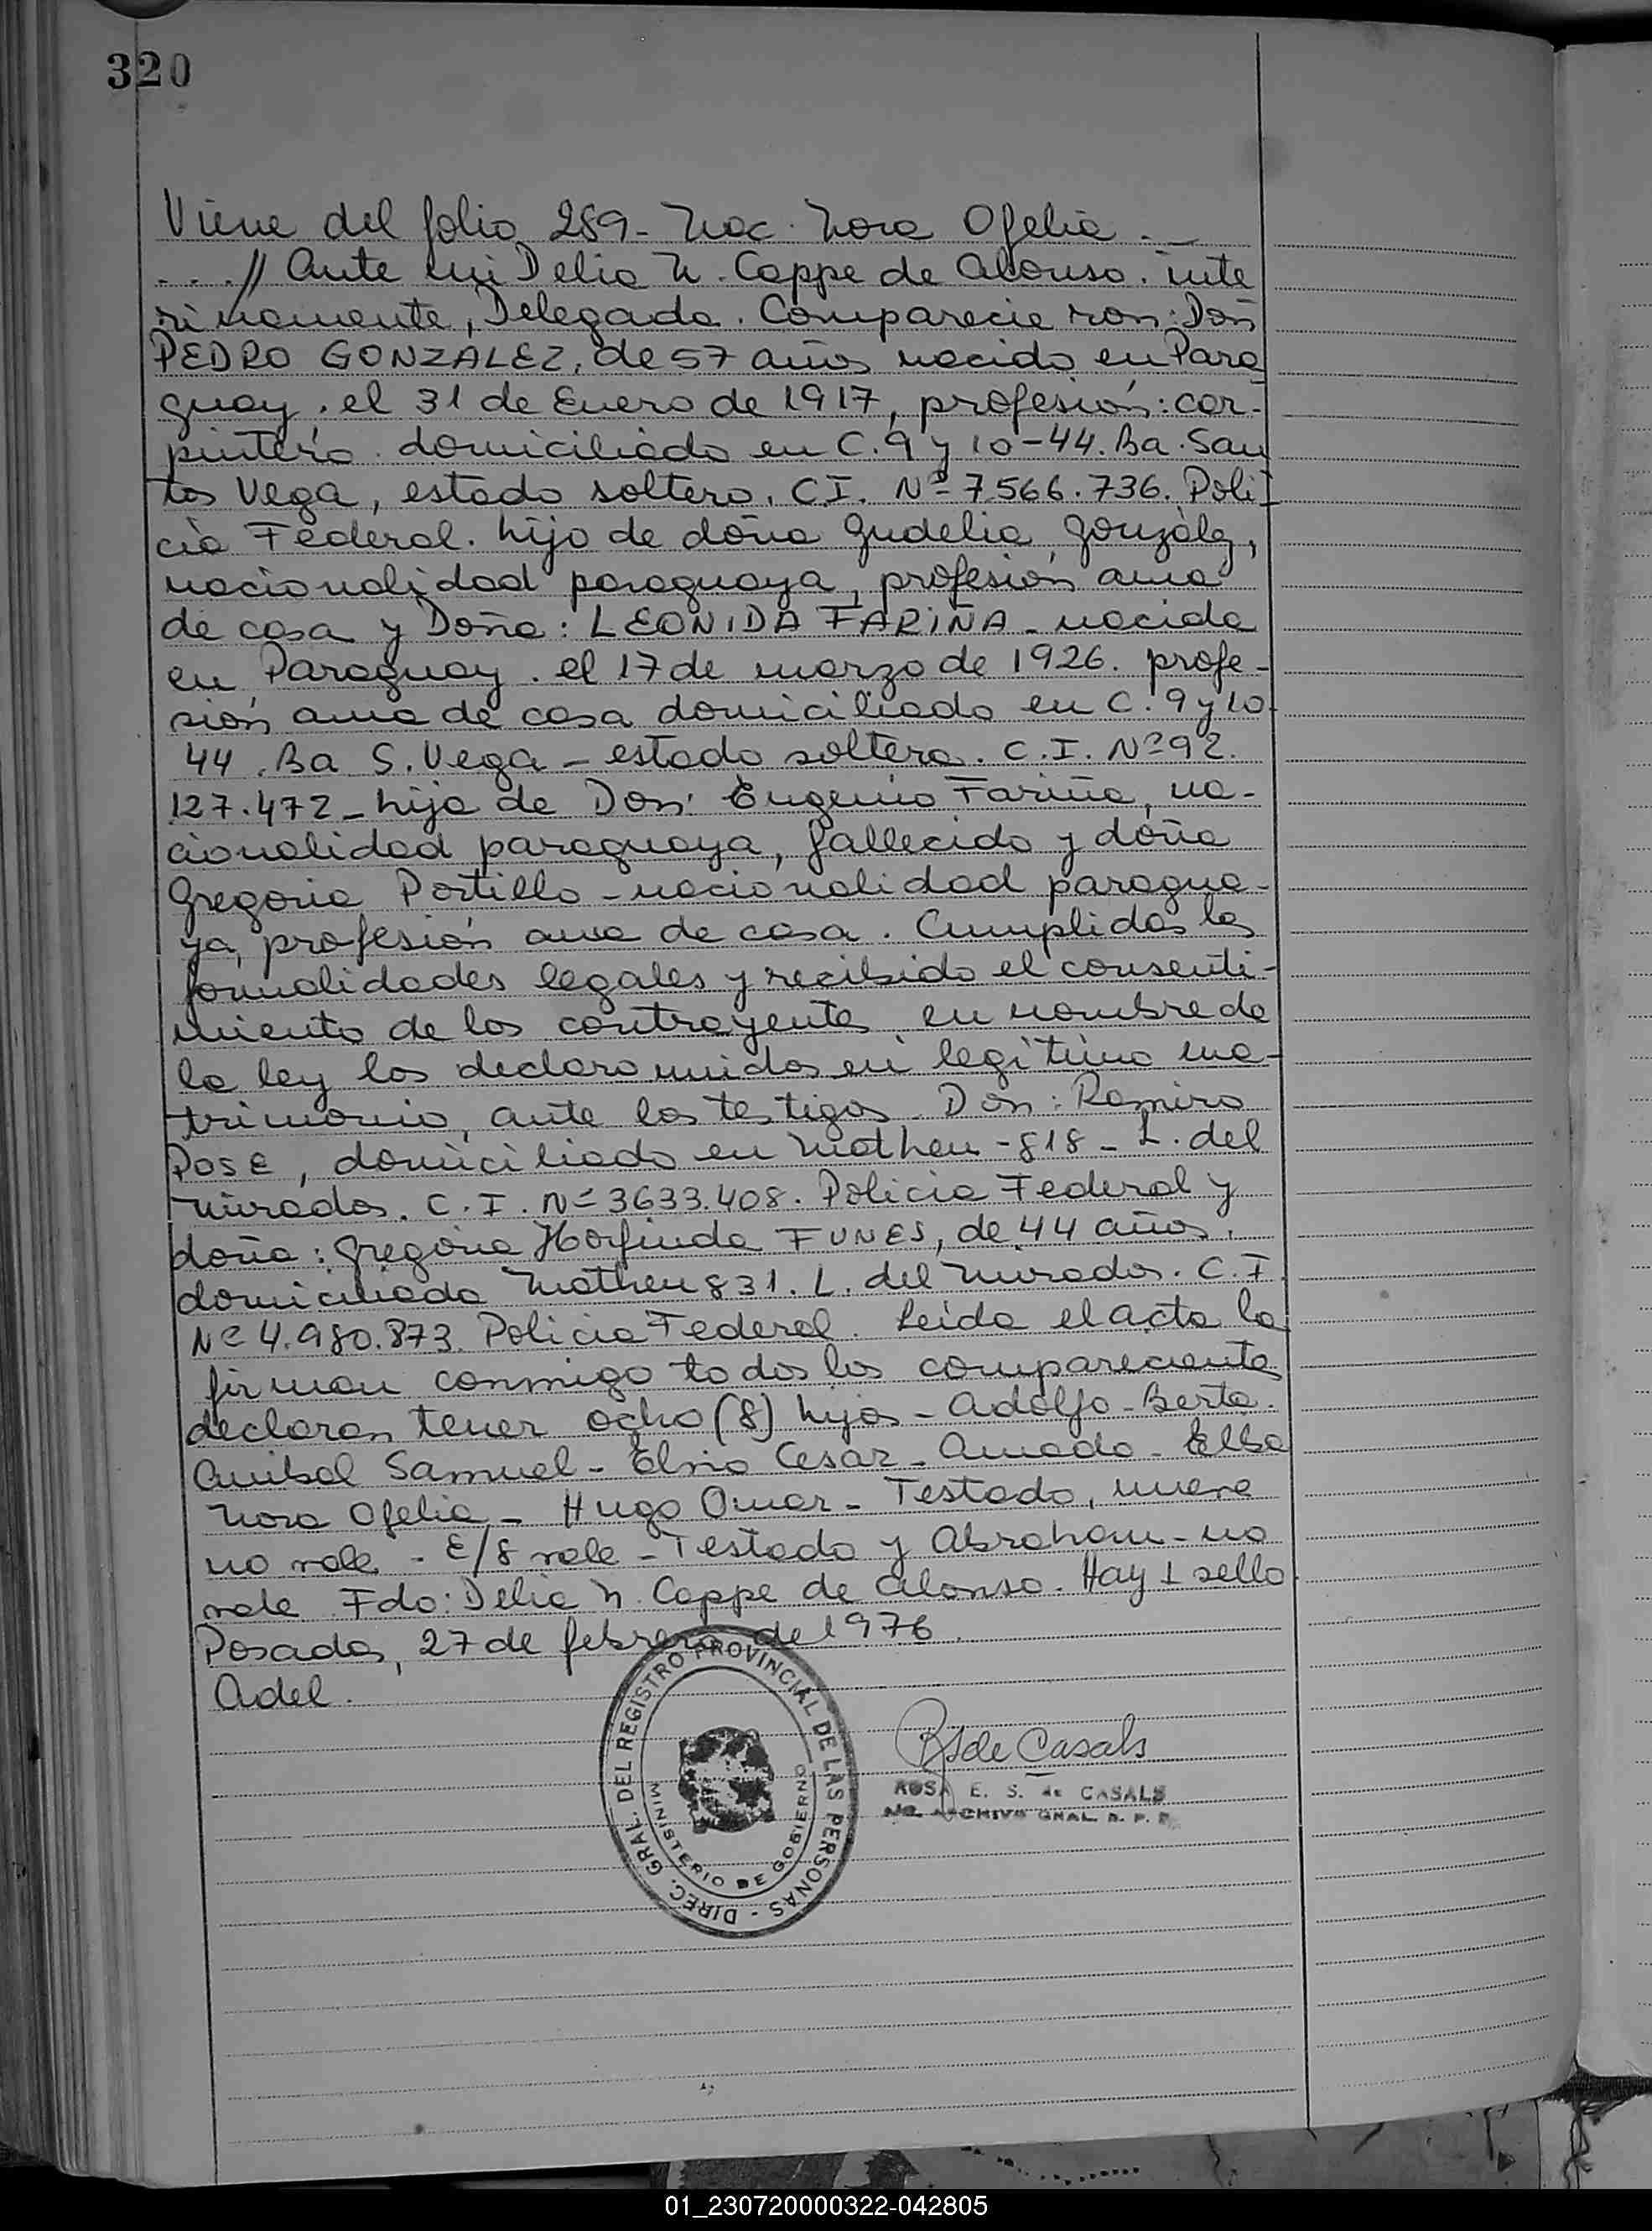 320
Viene del folio 289- Nac. Nora Ofelia . _
. . . // Ante mi Delia N. Cappe de Alonso. inte
rinamente, Delegada. Comparecie ron: Don
PEDRO GONZÁLEZ, de 57 años nacido en Para
guay, el 31 de Enero de 1917, profesión: car-
pintero. domiciliado en C. 9 y 10-44. Ba. San
tos Vega, estado soltero. C.I. Nº 7566.736. Poli
cia Federal. hijo de doña Gudelia González,
nacionalidad paraguaya, profesión ama
de casa y Doña: LEONIDA FARIÑA - nacida
en Paraguay. el 17 de marzo de 1926. profe-
sión ama de casa domiciliada en C. 9 y 10
44. Ba S. Vega - estado soltera. C.I. Nº 92.
127.472 - hija de Don: Eugenio Fariña, na-
cionalidad paraguaya, fallecido y doña
Gregoria Portillo - nacionalidad paragua-
ya, profesión ama de casa. Cumplidas las
formalidades legales y recibido el consenti-
miento de los contrayentes en nombre de
la ley los declaro unidos en legitimo ma-
trimonio, ante los testigos Don: Ramiro
POSE, domiciliado en Matheu - 818 - L. del
Mirador. C.I. Nº 3633.408. Policia Federal y
doña: Gregoria FUNES, de 44 años.
domiciliada Matheu 831. L. del Mirador. C.I
Nº 4.980.873. Policia Federal. Leida el acta la
firman conmigo todos los comparecientes
declaran tener ocho (8) hijos - Adolfo - Berta.
Anibal Samuel - Elvio Cesar - Amado - Elba
Nora Ofelia - Hugo Omar - Testado, nueve
no vale. - E/8 vale - Testado y Abraham - no
vale Fdo: Delia N. Cappe de Alonso. Hay 1 sello
Posadas, 27 de febrero de 1976.
Adel.
DIREC. GRAL. DEL REGISTRO PROVINCIAL DE LAS PERSONAS -
MINISTERIO DE GOBIERNO
de Casals
ROSA E. S. de CASALS
ARCHIVO GRAL. R. P. P.
01_230720000322-042805